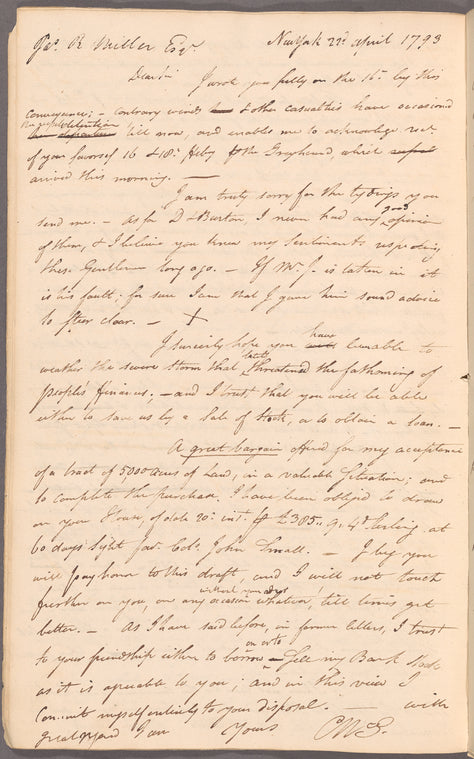 Jas. R. Miller Esqr. New York 22d. April 1793
Dear Sir
I wrote you fully on the 16th. by this
conveyance; - contrary winds & other casualties have occasiond
till now, and enables me to acknowledge rect.
of your favors of 16 & 18th. Feby the Greyhound, which
arrived this morning. —
I am truly sorry for the tydings you
send me. - As for D & Burton, I never had any good opinion
of them, & I believe you knew my sentiments respecting
these Gentlemen long ago. - If Mr. J. is taken in it
is his fault; for sure I am that I gave him sound advice
to steer clear. - X
I sincerely hope you have been able to
weather the severe storm that lately threatened the fathoming of
people's finances; - and I trust that you will be able
either to save us by a Sale of Stock, or to obtain a loan. -
A great bargain offerd for my acceptance
of a tract of 5,000 acres of Land, in a valuable situation; and
to complete the purchase, I have been obliged to draw
on your House, of date 20th. inst. £385.. 9, 4d. Sterling at
60 days sight Colo. John Small. - I beg you
will pay honor to this draft, and I will not touch
further on you, on any occasion whatever without your advys, till times get
better. - As I have said before, in former letters, I trust
to your friendship either to borrow on or to sell my Bank Stock
as it is agreeable to you; and in this view I
Commit myself entirely to your disposal. - with
great regard I am Yours